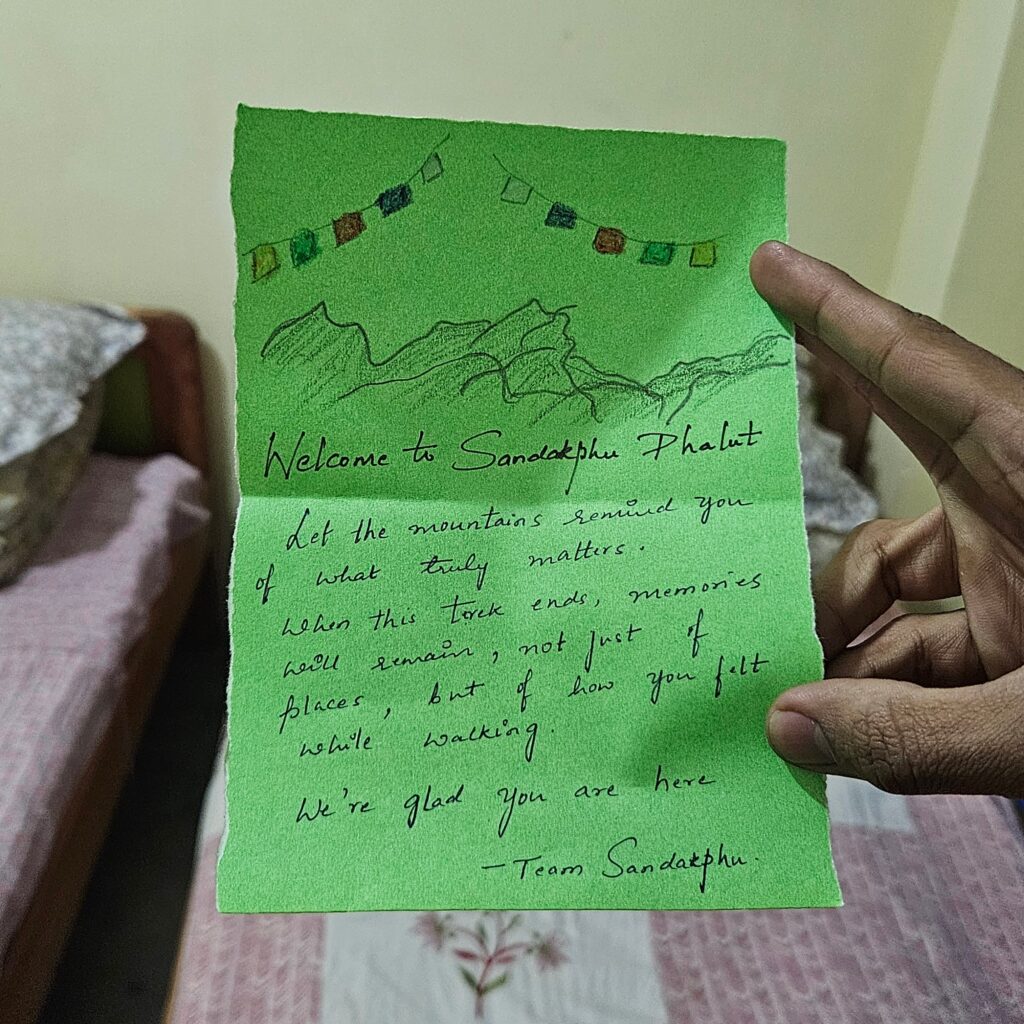 Welcome to Sandakphu Phalut
Let the mountains remind you
of what truly matters.
when this trek ends, memories
will remain, not just of
places, but of how you felt
while walking.
We're glad you are here
- Team Sandakphu.